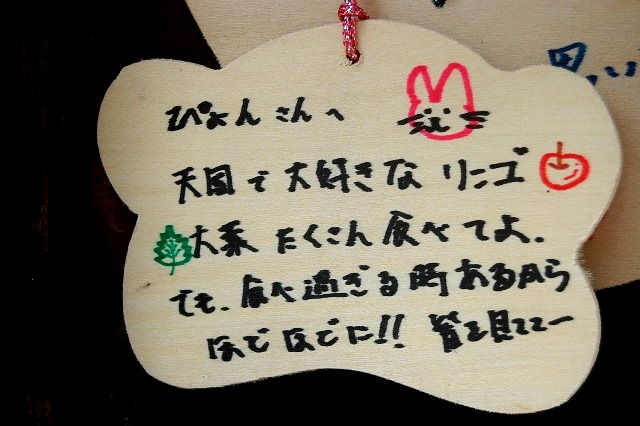 ぴょんさんへ
天国で大好きなリンゴ
大葉たくさん食べてよ.
でも、食べ過ぎる時あるから
ほどほどに!!
思い